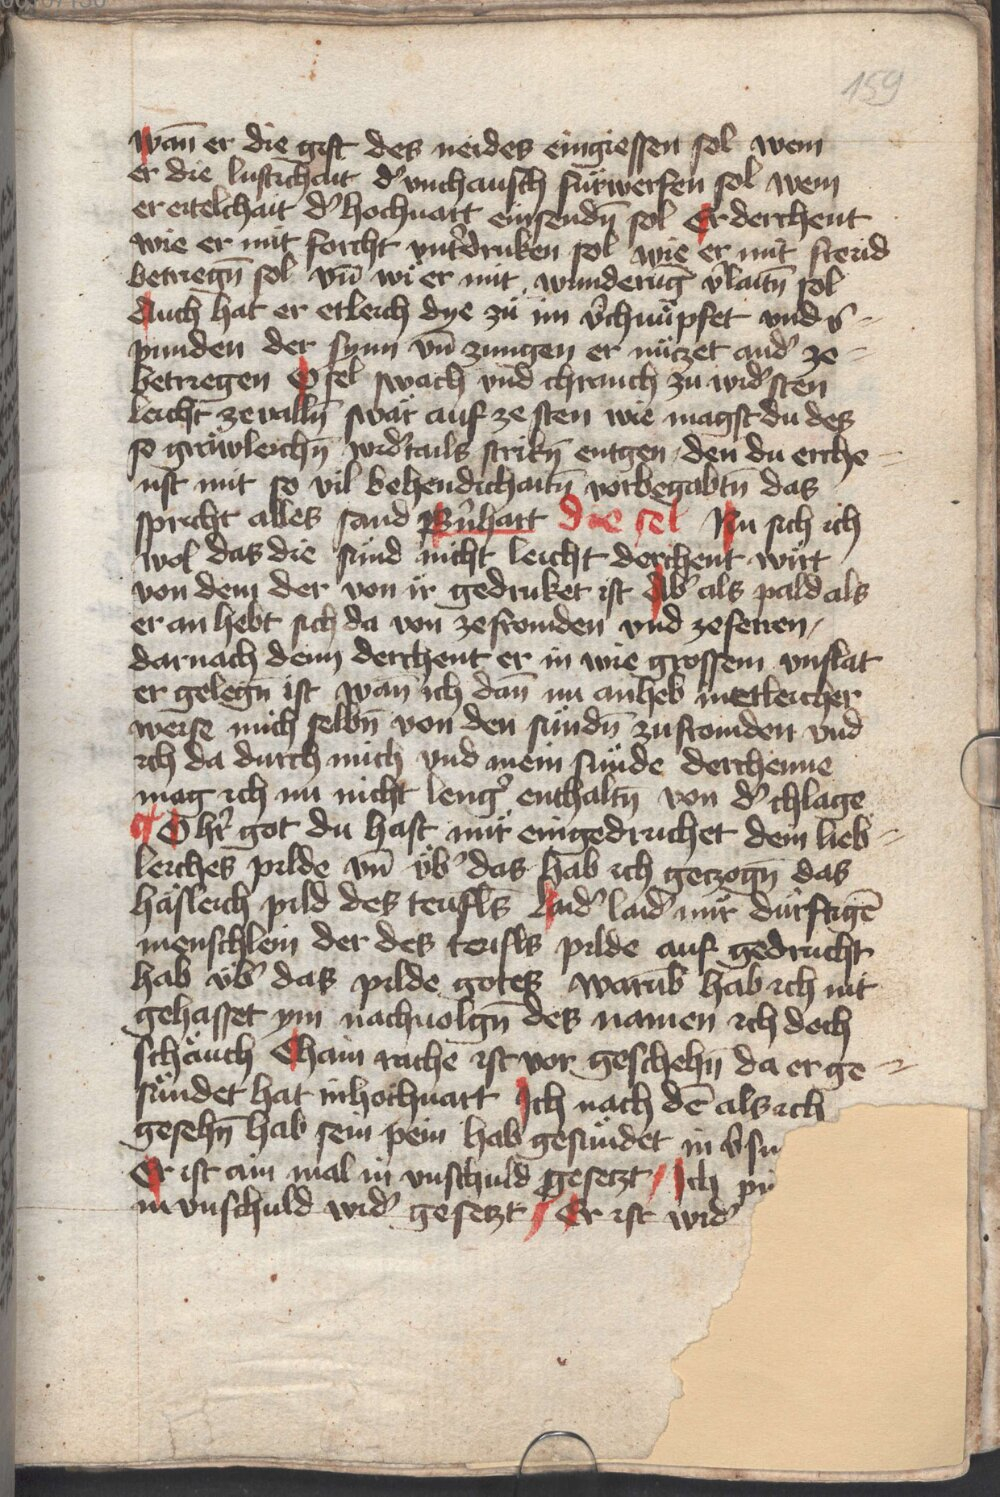 159
wan̄ er die gift des neides eingiessen sol wem
er die lustichait d' vnchausch fürwerfen sol wem
er eitelchait d' hochuart einsendn̄ sol Er derchent
wie er mit forcht vnt'druken sol wie er mit freud
betriegn̄ sol vn̄ wi er mit wunderūg v'laitn̄ sol
Auch hat er etleich dye zü im v'chnüpfet vnd
punden der synn vn̄ zungen er nüczet and' ze-
betriegen O sel swach vnd chranch zu wid'sten
leicht ze valln̄ swär auf ze sten wie magst du des
so gräwleichn̄ wid'tails strikn̄ entgen den du erche-
nst mit so vil behendichaitn̄ vorbegabtn̄ das
spricht alles sand B'nhart Die sel Nu sich ich
wol das die sünd nicht leicht derchent wirt
von dem der von ir gedruket ist Ab' als pald als
er an hebt sich da von ze fromden vnd ze ferren/
darnach denn derchent er in wie grossem vnflat
er gelegn̄ ist wan̄ ich dan̄ nu anheb in etleicher
weise mich selbn̄ von den sündn̄ zu fromden vnd
ich da durch mich vnd mein sünde derchenne
mag ich nu nicht leng' enthaltn̄ von d' chlage
O hr̄ got du hast mir eingedruchet dein lieb-
leiches pilde vn̄ üb' das hab ich geczogn̄ das
häsleich pild des teufls Laid' laid' mir dürftigē
menschlein der des teufls pilde auf gedrucht
hab üb' das pilde gotes warūb hab ich nit
gehasset ym nachuolgn̄ des namen ich doch
schäuch Chain rache ist vor geschehn̄ da er ge-
sündet hat in hochuart Ich nach dē als ich
gesehn̄ hab sein pein hab gesündet in v'su
Er ist ain mal in vnschuld gesetzt/ Ich pi
in vnschuld wid' gesetzt/ Er ist wid'